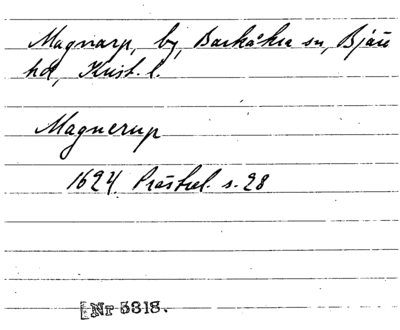 Magnarp, by, Barkåkra sn, Bjäre
hd, Krist. l.
Magnerup
1624. Prästrel. s. 28
[Nr 5818.